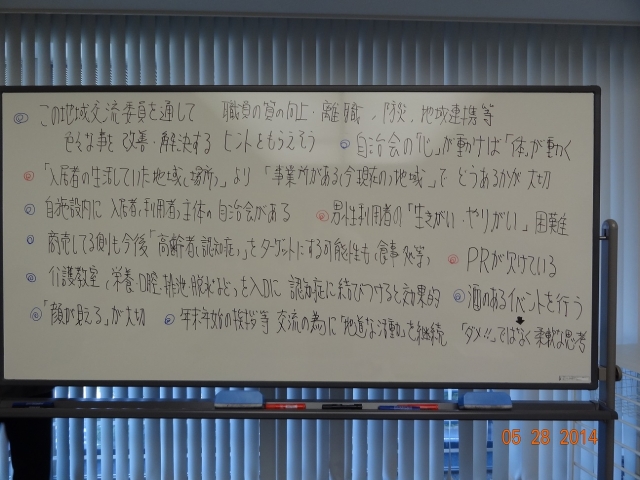 ◎ この地域交流委員を通して 職員の質の向上・離職・防災・地域連携等
色々な事を 改善・解決する ヒントをもらえそう ◎ 自治会の「心」が動けば「体」が動く
◎「入居者の生活していた地域(場所)」より 「事業所がある(今現在の)地域」で どうあるかが大切
◎ 自施設内に 入居者(利用者)主体の自治会がある ◎ 男性利用者の「生きがい・やりがい」困難
◎ 商売してる側も今後「高齢者(認知症)」をターゲットにする可能性も(食事処等) ◎ PRが欠けている
◎ 介護教室(栄養・口腔・排泄・脱水など)を入口に 認知症に結びつけると効果的 ◎ 酒のあるイベントを行う
◎「顔が見える」が大切 ◎ 年末年始の挨拶等 交流の為に「地道な活動」を継続 「ダメ!!」ではなく柔軟な思考
05 28 2014